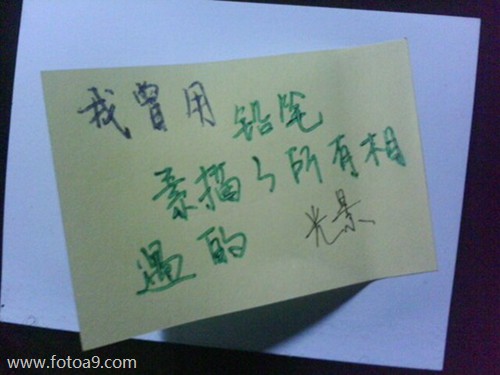 我曾用铅笔
素描了所有相
遇的 光景
www.fotoa9.com